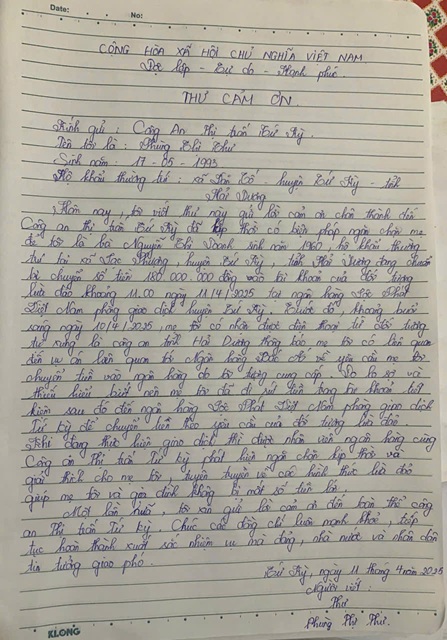 Date: No:
CỘNG HÒA XÃ HỘI CHỦ NGHĨA VIỆT NAM
Độc lập - Tự do - Hạnh phúc.
THƯ CẢM ƠN.
Kính gửi : Công An Thị trấn Tứ Kỳ.
Tên tôi là : Phùng Thị Thư
Sinh năm : 17 - 05 - 1993
Hộ khẩu thường trú : xã huyện Tứ Kỳ - tỉnh
Hải Dương
Hôm nay, tôi viết thư này gửi lời cảm ơn chân thành đến
Công an thị trấn Tứ Kỳ đã kịp thời có biện pháp ngăn chặn mẹ
đẻ tôi là bà Nguyễn Thị Doanh sinh năm 1960, hộ khẩu thường
trú tại xã Lạc Phượng, huyện Tứ Kỳ, tỉnh Hải Dương đang chuẩn
bị chuyển số tiền 180 000 000 đồng vào tài khoản của đối tượng
lừa đảo khoảng 11.00 ngày 11/4/2025 tại ngân hàng Lộc Phát
Việt Nam phòng giao dịch huyện Tứ Kỳ. Trước đó, khoảng buổi
sáng ngày 10/4/2025, mẹ tôi có nhận được điện thoại từ đối tượng
tự xưng là công an tỉnh Hải Dương thông báo mẹ tôi có liên quan
đến vụ án liên quan tới Ngân hàng Bắc Á và yêu cầu mẹ tôi
chuyển tiền vào ngân hàng do đối tượng cung cấp. Do lo sợ và
thiếu hiểu biết nên mẹ tôi đã đi rút tiền trong tài khoản tiết
kiệm sau đó đến ngân hàng Lộc Phát Việt Nam phòng giao dịch
Tứ Kỳ để chuyển tiền theo yêu cầu của đối tượng lừa đảo.
Khi đang thực hiện giao dịch thì được nhân viên ngân hàng cùng
Công an Thị trấn Tứ Kỳ phát hiện ngăn chặn kịp thời và
giải thích cho mẹ tôi, tuyên truyền về các hình thức lừa đảo
giúp mẹ tôi và gia đình không bị mất số tiền lớn.
Một lần nữa, tôi xin gửi lời cảm ơn đến toàn thể công
an Thị trấn Tứ Kỳ. Chúc các đồng chí luôn mạnh khoẻ, tiếp
tục hoàn thành xuất sắc nhiệm vụ mà đảng, nhà nước và nhân dân
tin tưởng giao phó.
Tứ Kỳ, ngày 11 tháng 4 năm 2025
Người viết :
Thư
Phùng Thị Thư.
KLONG